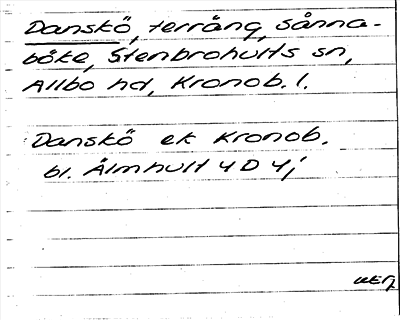 Danskö, terräng, Sånna-
böke, Stenbrohults sn,
Allbo hd, Kronob. l.
Danskö ek Kronob.
bl. Älmhult 4 D 4j